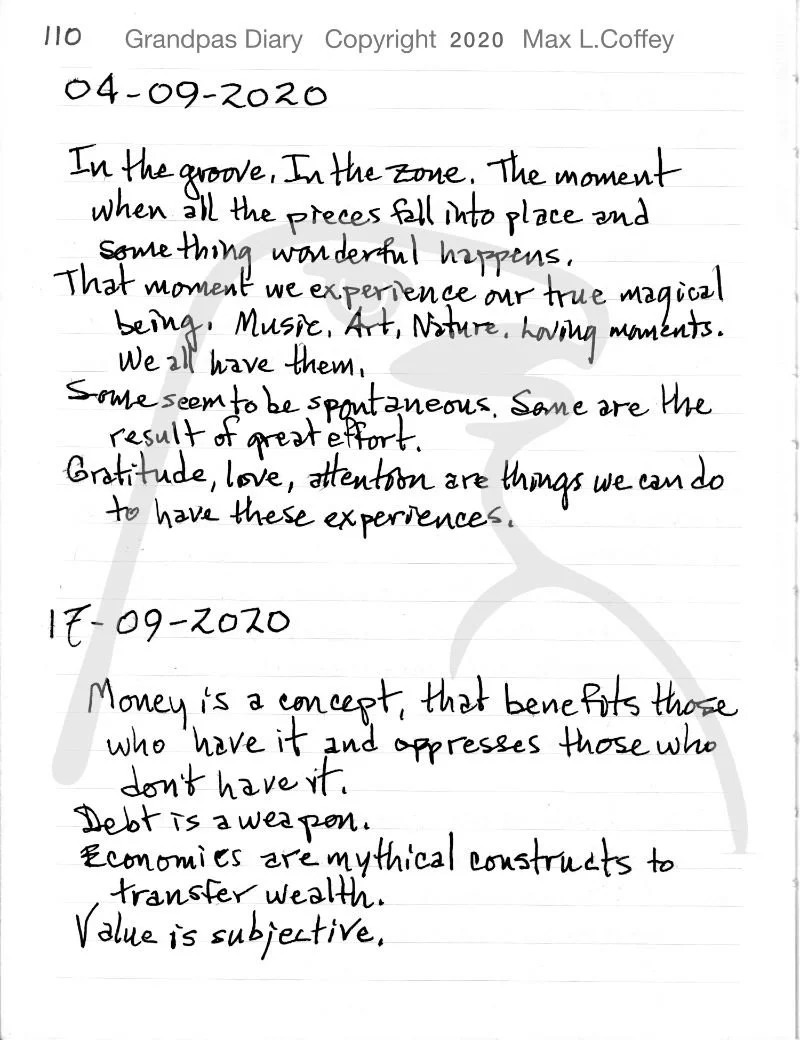 110 Grandpas Diary Copyright 2020 Max L.Coffey
04-09-2020
In the groove. In the zone. The moment
when all the pieces fall into place and
something wonderful happens.
That moment we experience our true magical
being. Music. Art, Nature. Loving moments.
We all have them.
Some seem to be spontaneous. Some are the
result of great effort.
Gratitude, love, attention are things we can do
to have these experiences.
17-09-2020
Money is a concept, that benefits those
who have it and oppresses those who
don't have it.
Debt is a weapon.
Economies are mythical constructs to
transfer wealth.
Value is subjective.